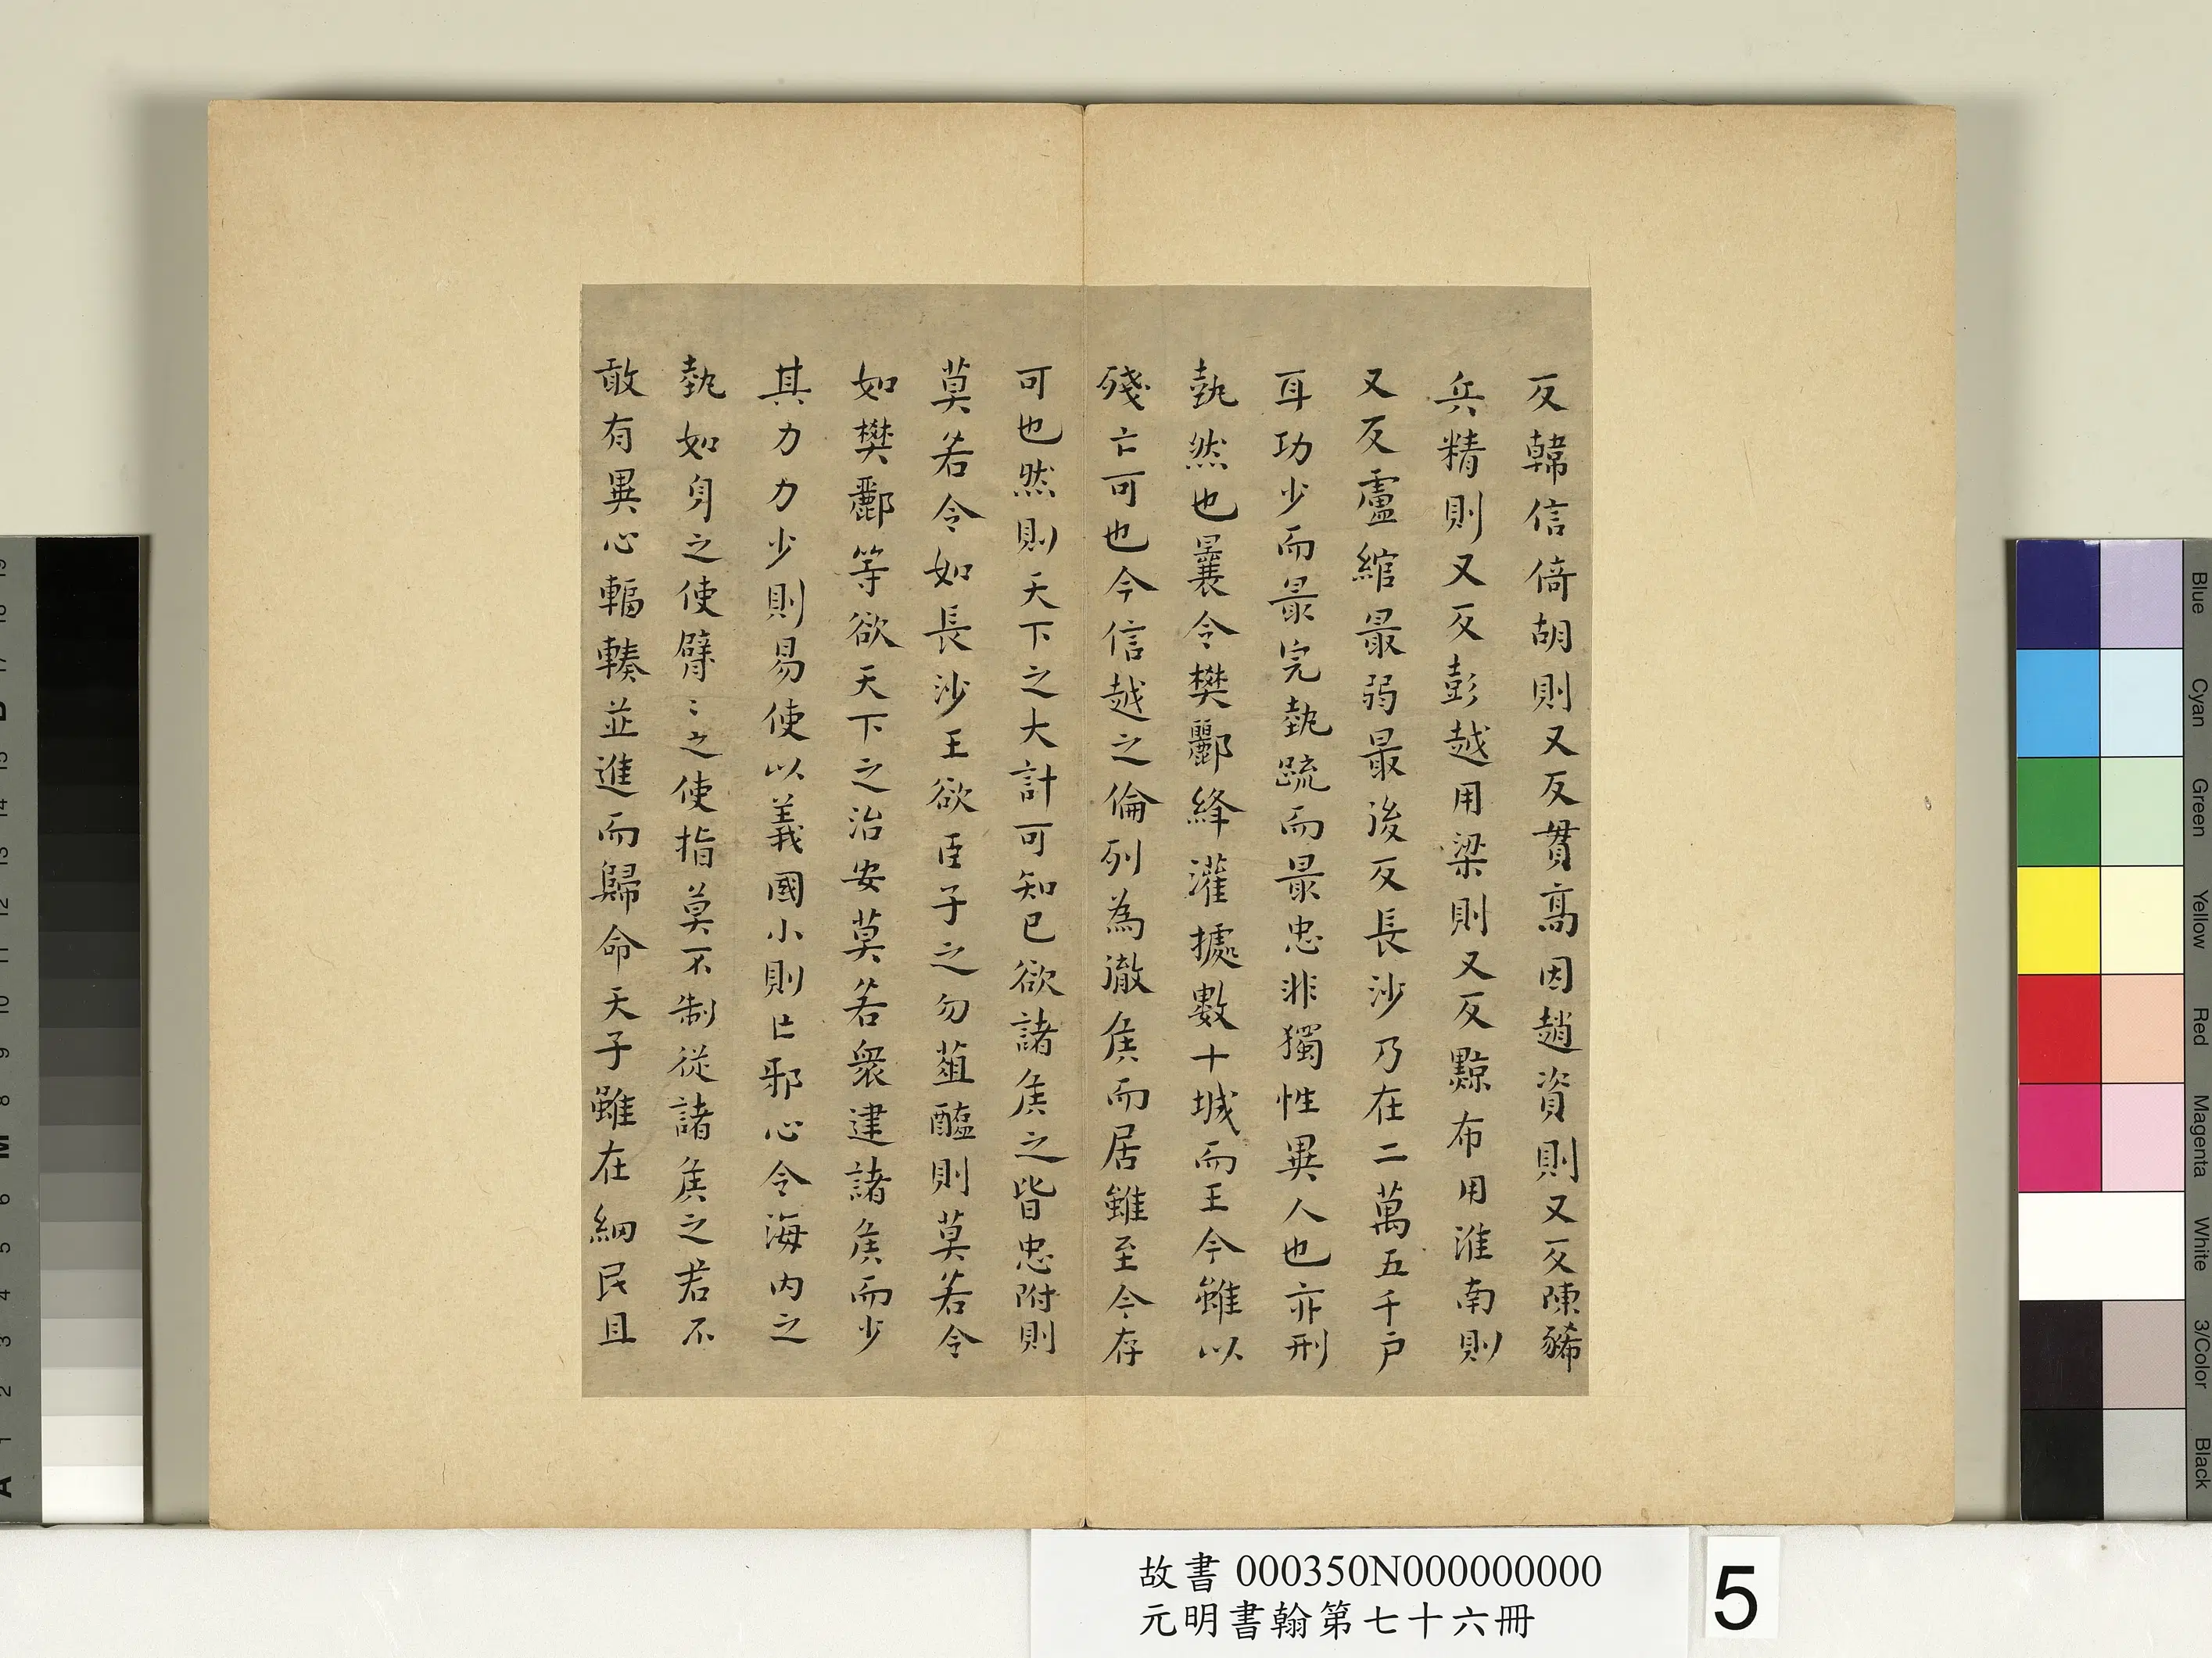 反韓信倚胡則又反貫高因趙資則又反陳豨
兵精則又反彭越用梁則又反黥布用淮南則
又反盧綰最弱最後反長沙乃在二萬五千戶
耳功少而最完埶疏而最忠非獨性異人也亦形
埶然也曩令樊酈絳灌據數十城而王今雖以
殘亡可也令信越之倫列為徹矦而居雖至今存
可也然則天下之大計可知已欲諸矦之皆忠附則
莫若令如長沙王欲臣子之勿葅醢則莫若令
如樊酈等欲天下之治安莫若衆建諸矦而少
其力力少則易使以義國小則亡邪心令海內之
埶如身之使臂〻之使指莫不制從諸矦之君不
敢有異心輻輳並進而歸命天子雖在細民且
故書 000350N000000000
元明書翰第七十六冊
5
Blue
Cyan
Green
Yellow
Red
Magenta
White
3/Color
Black